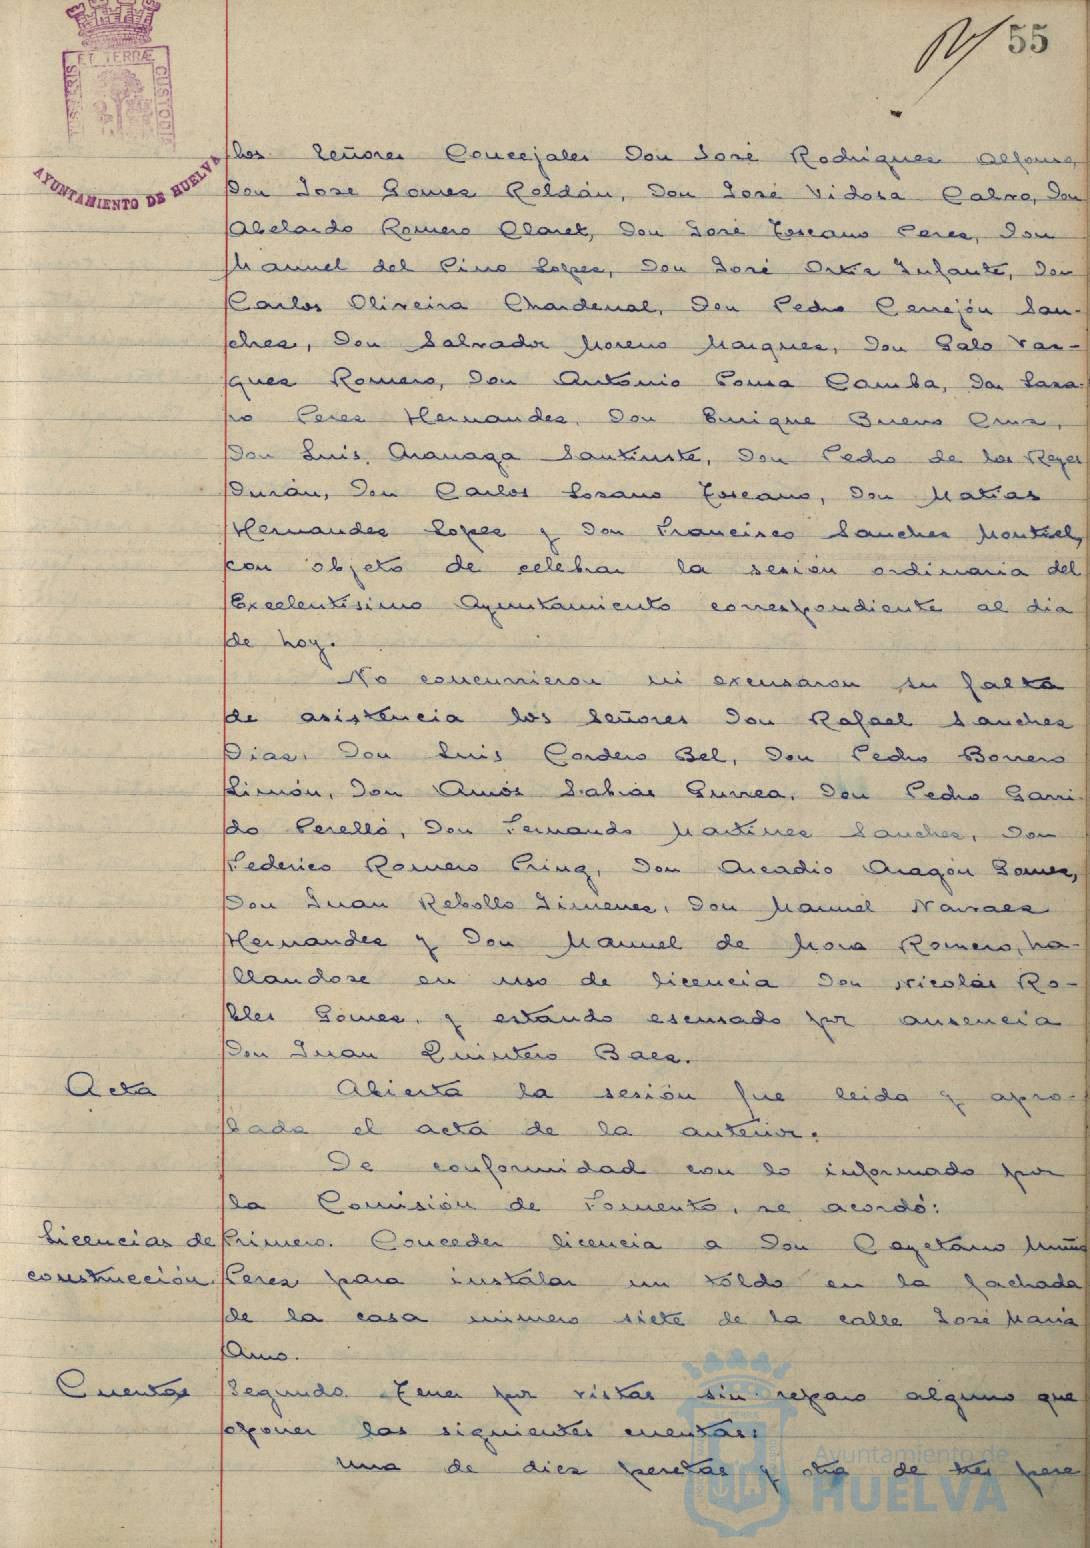 55
PORTUS MARIS ET TERRÆ CUSTODIA
AYUNTAMIENTO DE HUELVA
los Señores Concejales Don José Rodriguez Alfonso,
Don Jose Gomez Roldán, Don José Vidosa Calvo, Don
Abelardo Romero Claret, Don José Toscano Perez, Don
Manuel del Pino Lopez, Don José Ortiz Infante, Don
Carlos Oliveira Chardenal, Don Pedro Cerrejón San-
chez, Don Salvador Moreno Marquez, Don Galo Vaz-
quez Romero, Don Antonio Pousa Camba, Don Laza-
ro Perez Hernandez, Don Enrique Bueno Cruz,
Don Luis Aranaga Santiuste, Don Pedro de los Reyes
Durán, Don Carlos Lozano Toscano, Don Matias
Hernandez Lopez y Don Francisco Sanchez Montiel,
con objeto de celebrar la sesión ordinaria del
Excelentísimo Ayuntamiento correspondiente al dia
de hoy.
No concurrieron ni excusaron su falta
de asistencia los Señores Don Rafael Sanchez
Diaz, Don Luis Cordero Bel, Don Pedro Borrero
Limón, Don Amós Sabrás Gurrea, Don Pedro Garri-
do Perelló, Don Fernando Martinez Sanchez, Don
Federico Romero Pring, Don Arcadio Aragón Gomez,
Don Juan Rebollo Jimenez, Don Manuel Narvaez
Hernandez y Don Manuel de Mora Romero, ha-
llandose en uso de licencia Don Nicolás Ro-
bles Gómez, y estando escusado por ausencia
Don Juan Quintero Baez.
Acta
Abierta la sesión fue leida y apro-
bada el acta de la anterior.
De conformidad con lo informado por
la Comisión de Fomento, se acordó:
Licencias de construcción.
Primero. Conceder licencia a Don Cayetano Muñoz
Perez para instalar un toldo en la fachada
de la casa número siete de la calle José Maria
Amo.
Cuentas
Segundo. Tener por vistas sin reparo alguno que
oponer las siguientes cuentas:
Una de diez pesetas y otra de tres pese
Ayuntamiento de
HUELVA